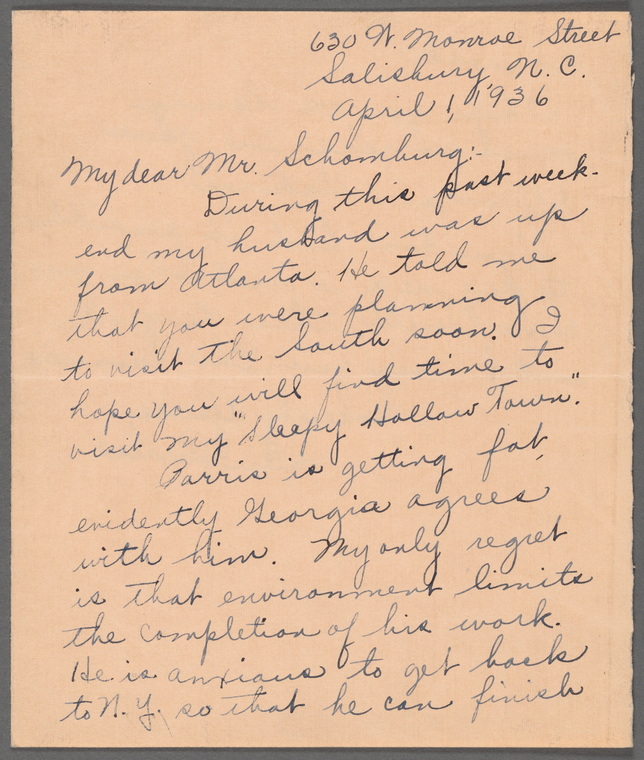 630 W. Monroe Street
Salisbury, N. C.
April 1, 1936
My dear Mr. Schomburg:-
During this past week-
end my husband was up
from Atlanta. He told me
that you were planning
to visit the South soon. I
hope you will find time to
visit my "Sleepy Hollow Town."
Parris is getting fat,
evidently Georgia agrees
with him. My only regret
is that environment limits
the completion of his work.
He is anxious to get back
to N. Y. so that he can finish